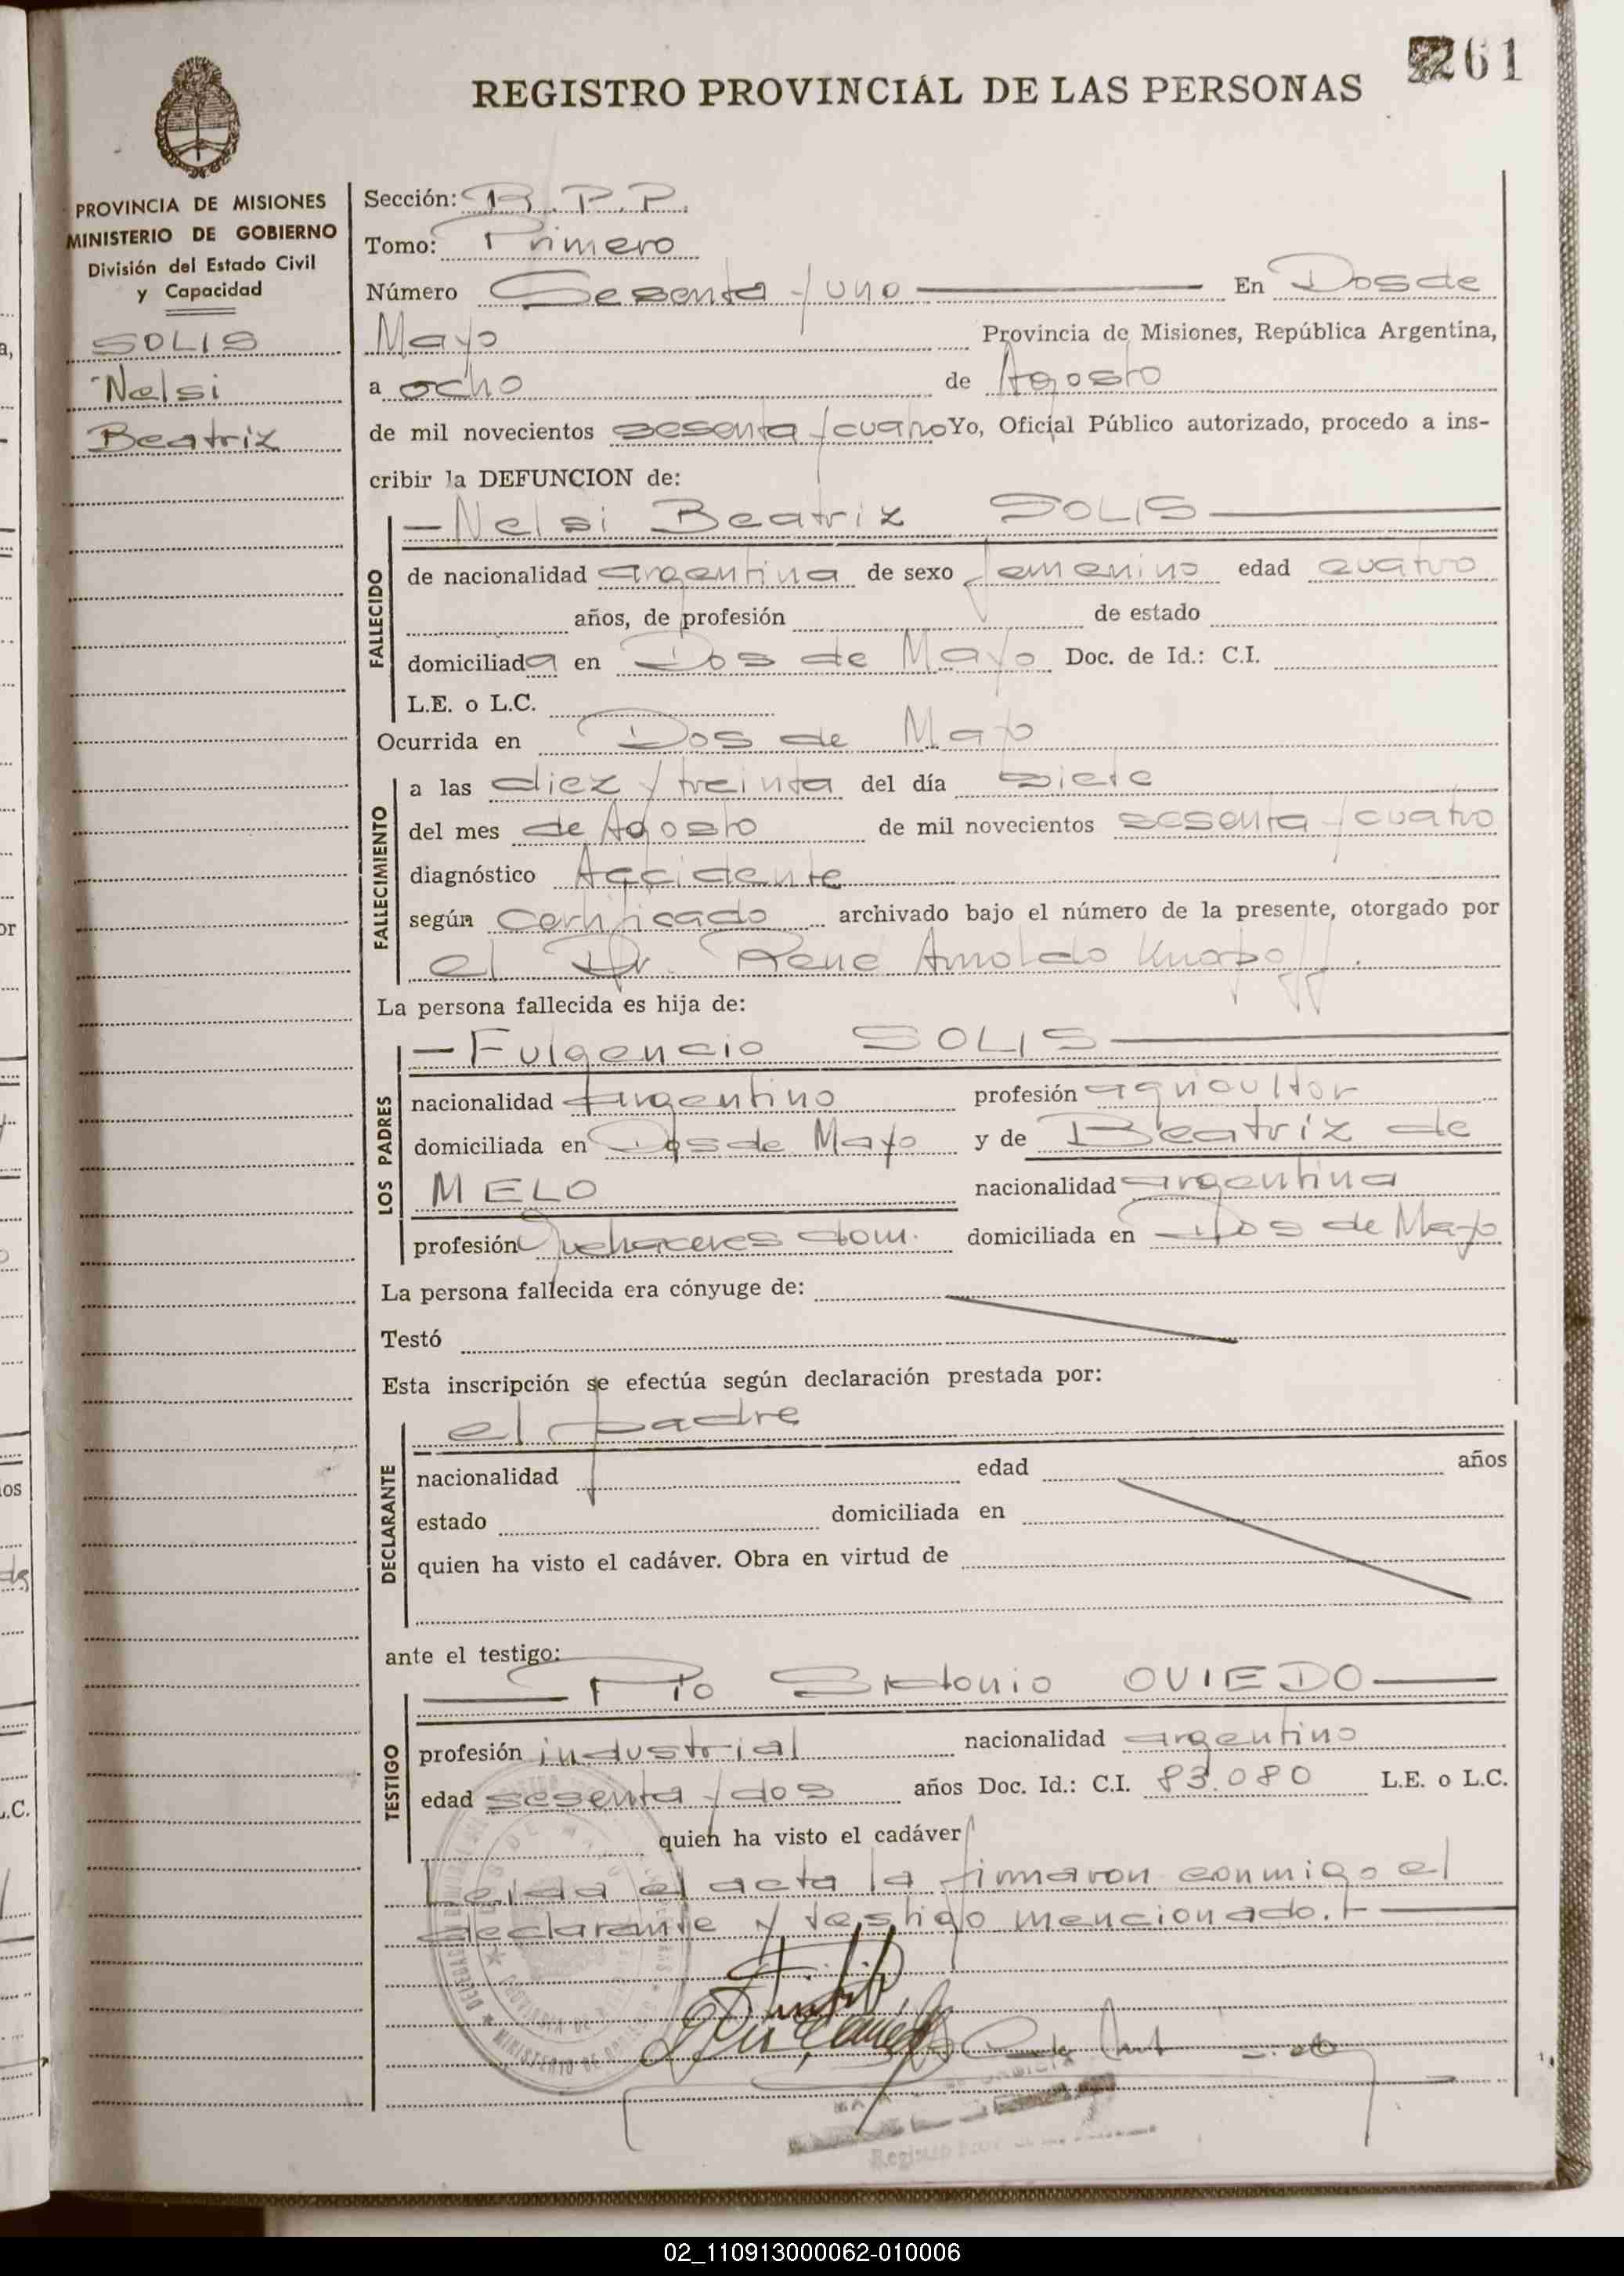 261
REGISTRO PROVINCIAL DE LAS PERSONAS
PROVINCIA DE MISIONES
MINISTERIO DE GOBIERNO
División del Estado Civil
y Capacidad
SOLIS
Nelsi
Beatriz
Sección: R.P.P.
Tomo: Primero
Número Sesenta y uno En Dos de
Mayo Provincia de Misiones, República Argentina,
a ocho de Agosto
de mil novecientos sesenta y cuatro Yo, Oficial Público autorizado, procedo a ins-
cribir la DEFUNCION de:
FALLECIDO
— Nelsi Beatriz SOLIS —
de nacionalidad argentina de sexo femenino edad cuatro
años, de profesión de estado
domiciliada en Dos de Mayo Doc. de Id.: C.I.
L.E. o L.C.
Ocurrida en Dos de Mayo
FALLECIMIENTO
a las diez y treinta del día siete
del mes de Agosto de mil novecientos sesenta y cuatro
diagnóstico Accidente
según certificado archivado bajo el número de la presente, otorgado por
el Dr. Rene Arnoldo
La persona fallecida es hija de:
LOS PADRES
— Fulgencio SOLIS —
nacionalidad argentino profesión agricultor
domiciliada en Dos de Mayo y de Beatriz de
MELO nacionalidad argentina
profesión Quehaceres dom. domiciliada en Dos de Mayo
La persona fallecida era cónyuge de:
Testó
Esta inscripción se efectúa según declaración prestada por:
DECLARANTE
el padre
nacionalidad edad años
estado domiciliada en
quien ha visto el cadáver. Obra en virtud de
ante el testigo:
TESTIGO
— Pio OVIEDO —
profesión industrial nacionalidad argentino
edad sesenta y dos años Doc. Id.: C.I. 83.080 L.E. o L.C.
quien ha visto el cadáver
Leida el acta la firmaron conmigo el
declarante y testigo mencionado.-
02_110913000062-010006